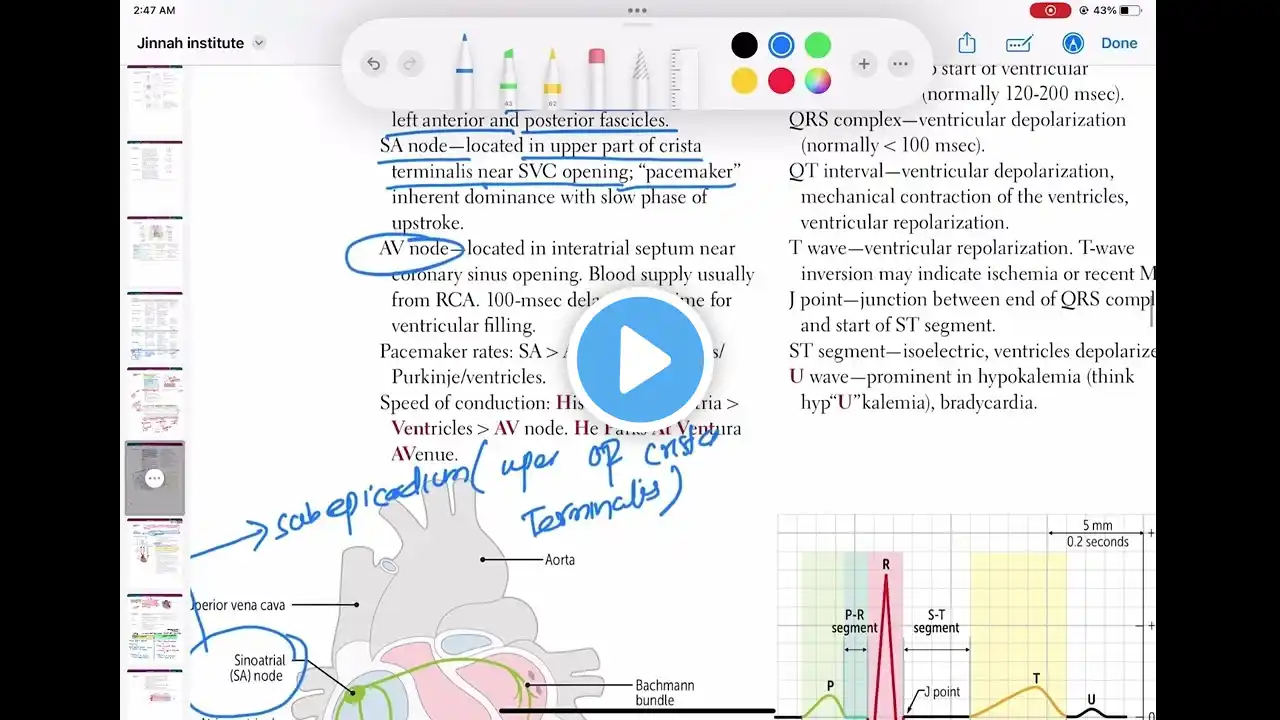 2:47 AM
43%
Jinnah institute
Done
43
62
left anterior and posterior fascicles.
SA node—located in upper part of crista
terminalis near SVC opening; “pacemaker”
inherent dominance with slow phase of
upstroke.
AV node—located in interatrial septum near
coronary sinus opening. Blood supply usually
from RCA. 100-msec for
ventricular filling.
Pacemaker rates: SA >
Purkinje/ventricles.
Speed of conduction: >
Ventricles > AV node. He Parks At Ventura
AVenue.
of ventricular
(normally 120-200 msec).
QRS complex—ventricular depolarization
(normally < 100 msec).
QT interval—ventricular depolarization,
mechanical contraction of the ventricles,
ventricular repolarization.
T wave—ventricular repolarization. T-wave
inversion may indicate ischemia or recent M
J point—junction between end of QRS compl
and start of ST segment.
ST segment—isoelectric, ventricles depolarize
U wave—prominent in hypokalemia (think
hyp“U”kalemia), bradycardia.
subepicardium ( uper of crista
Terminalis )
Aorta
perior vena cava
Sinoatrial
(SA) node
Bachmann
bundle
5 mm
0.2 seconds
R
P-R
S-T
segment
J point
T
U